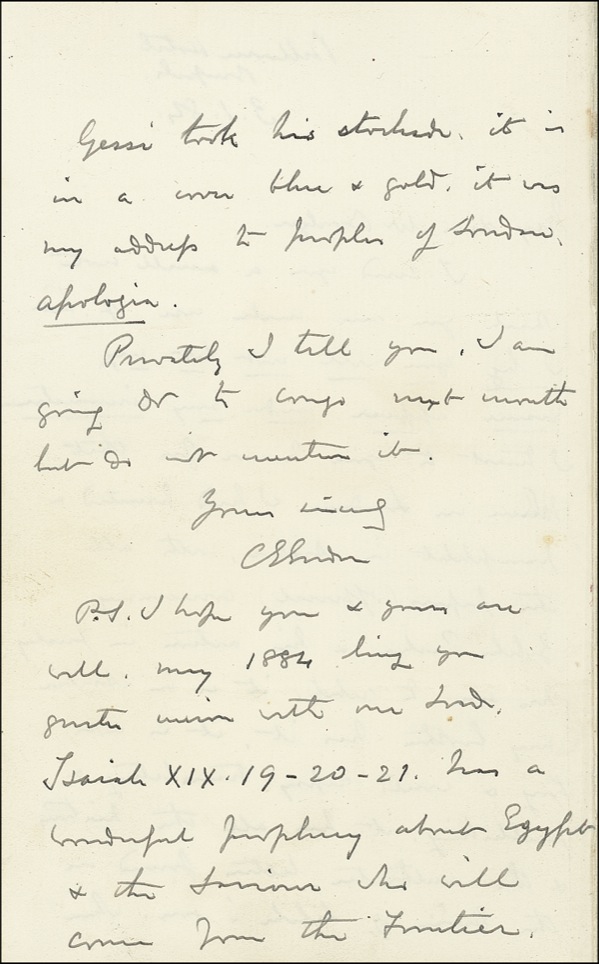 Gessi took his stockade. it is
in a cover blue & gold. it was
my address to peoples of London.
apologia.
Privately I tell you, I am
going to Congo next month
but do not mention it.
Yours sincerely
CEGordon
P.S. I hope you & yours are
well. may 1884 bring you
greater union with our Lord.
Isaiah XIX. 19-20-21. has a
wonderful prophecy about Egypt
& the Saviour who will
come from the Frontier.